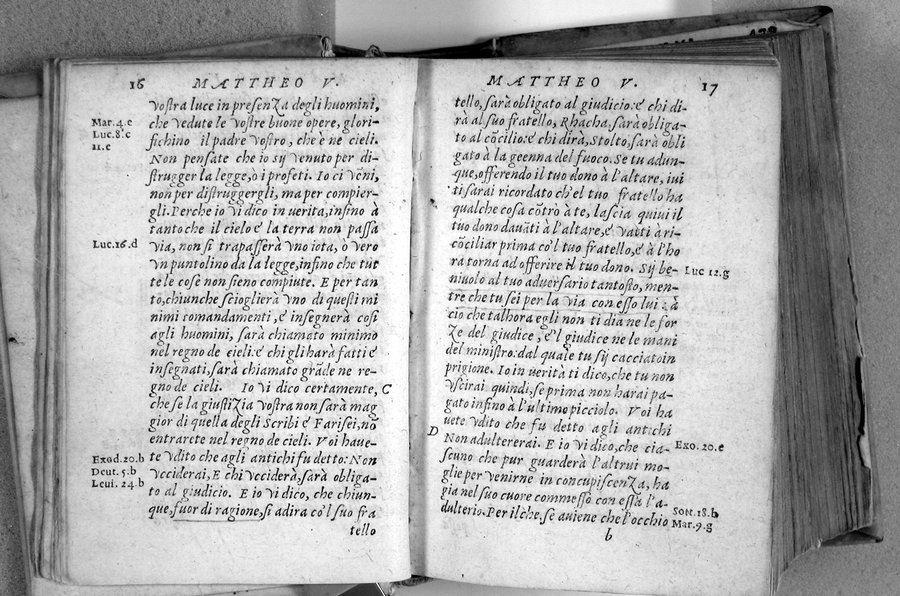 16 MATTHEO V.
vostra luce in presenza degli huomini,
Mar.4.c che vedute le vostre buone opere, glori-
Luc.8.c fichino il padre vostro, che è ne cieli.
11.e Non pensate che io sÿ venuto per di-
strugger la legge, ò i profeti. Io ci vẽni,
non per distruggergli, ma per compier-
gli. Perche io vi dico in verita, infino à
tanto che il cielo e la terra non passa
Luc.16.d via, non si trapasserà vno iota, ò vero
vn puntolino da la legge, infino che tut
te le cose non sieno compiute. E per tan
to, chiunche scioglierà vno di questi mi
nimi comandamenti, e insegnerà così
agli huomini, sarà chiamato minimo
nel regno de cieli: e chi gli harà fatti e
insegnati, sarà chiamato grãde ne re-
gno de cieli. Io vi dico certamente, C
che se la giustizia vostra non sarà mag
gior di quella degli Scribi e Farisei, nō
entrarete nel regno de cieli. Voi haue-
Exod.20.b te vdito che agli antichi fu detto: Non
Deut.5.b vcciderai, E chi vcciderà, sarà obliga-
Leui.24.b to al giudicio. E io vi dico, che chiun-
que, fuor di ragione, si adira co'l suo fra
tello
MATTHEO V. 17
tello, sarà obligato al giudicio: e chi di-
rà al suo fratello, Rhacha, sarà obliga-
to al cōcilio: e chi dirà, Stolto, sarà obli
gato à la geenna del fuoco. Se tu adun-
que, offerendo il tuo dono à l'altare, iui
ti sarai ricordato ch'el tuo fratello ha
qualche cosa cōtrò à te, lascia quiui il
tuo dono dauāti à l'altare, e vatti à ri-
cōciliar prima co'l tuo fratello, e à l'ho
ra torna ad offerire il tuo dono. Sÿ be- Luc 12.g
niuolo al tuo aduersario tantosto, men-
tre che tu sei per la via con esso lui: à
cio che talhora egli non ti dia ne le for
ze del giudice, e'l giudice ne le mani
del ministro: dal quale tu sÿ cacciato in
prigione. Io in uerità ti dico, che tu non
vscirai quindi, se prima non harai pa-
gato infino à l'ultimo picciolo. Voi ha
uete vdito che fu detto agli antichi
D Non adultererai. E io vi dico, che cia- Exo.20.e
scuno che pur guarderà l'altrui mo-
glie per venirne in concupiscenza, ha
gia nel suo cuore commesso con essa l'a-
dulterio. Per ilche, se auiene che l'occhio Sott.18.b
Mar.9.g
b